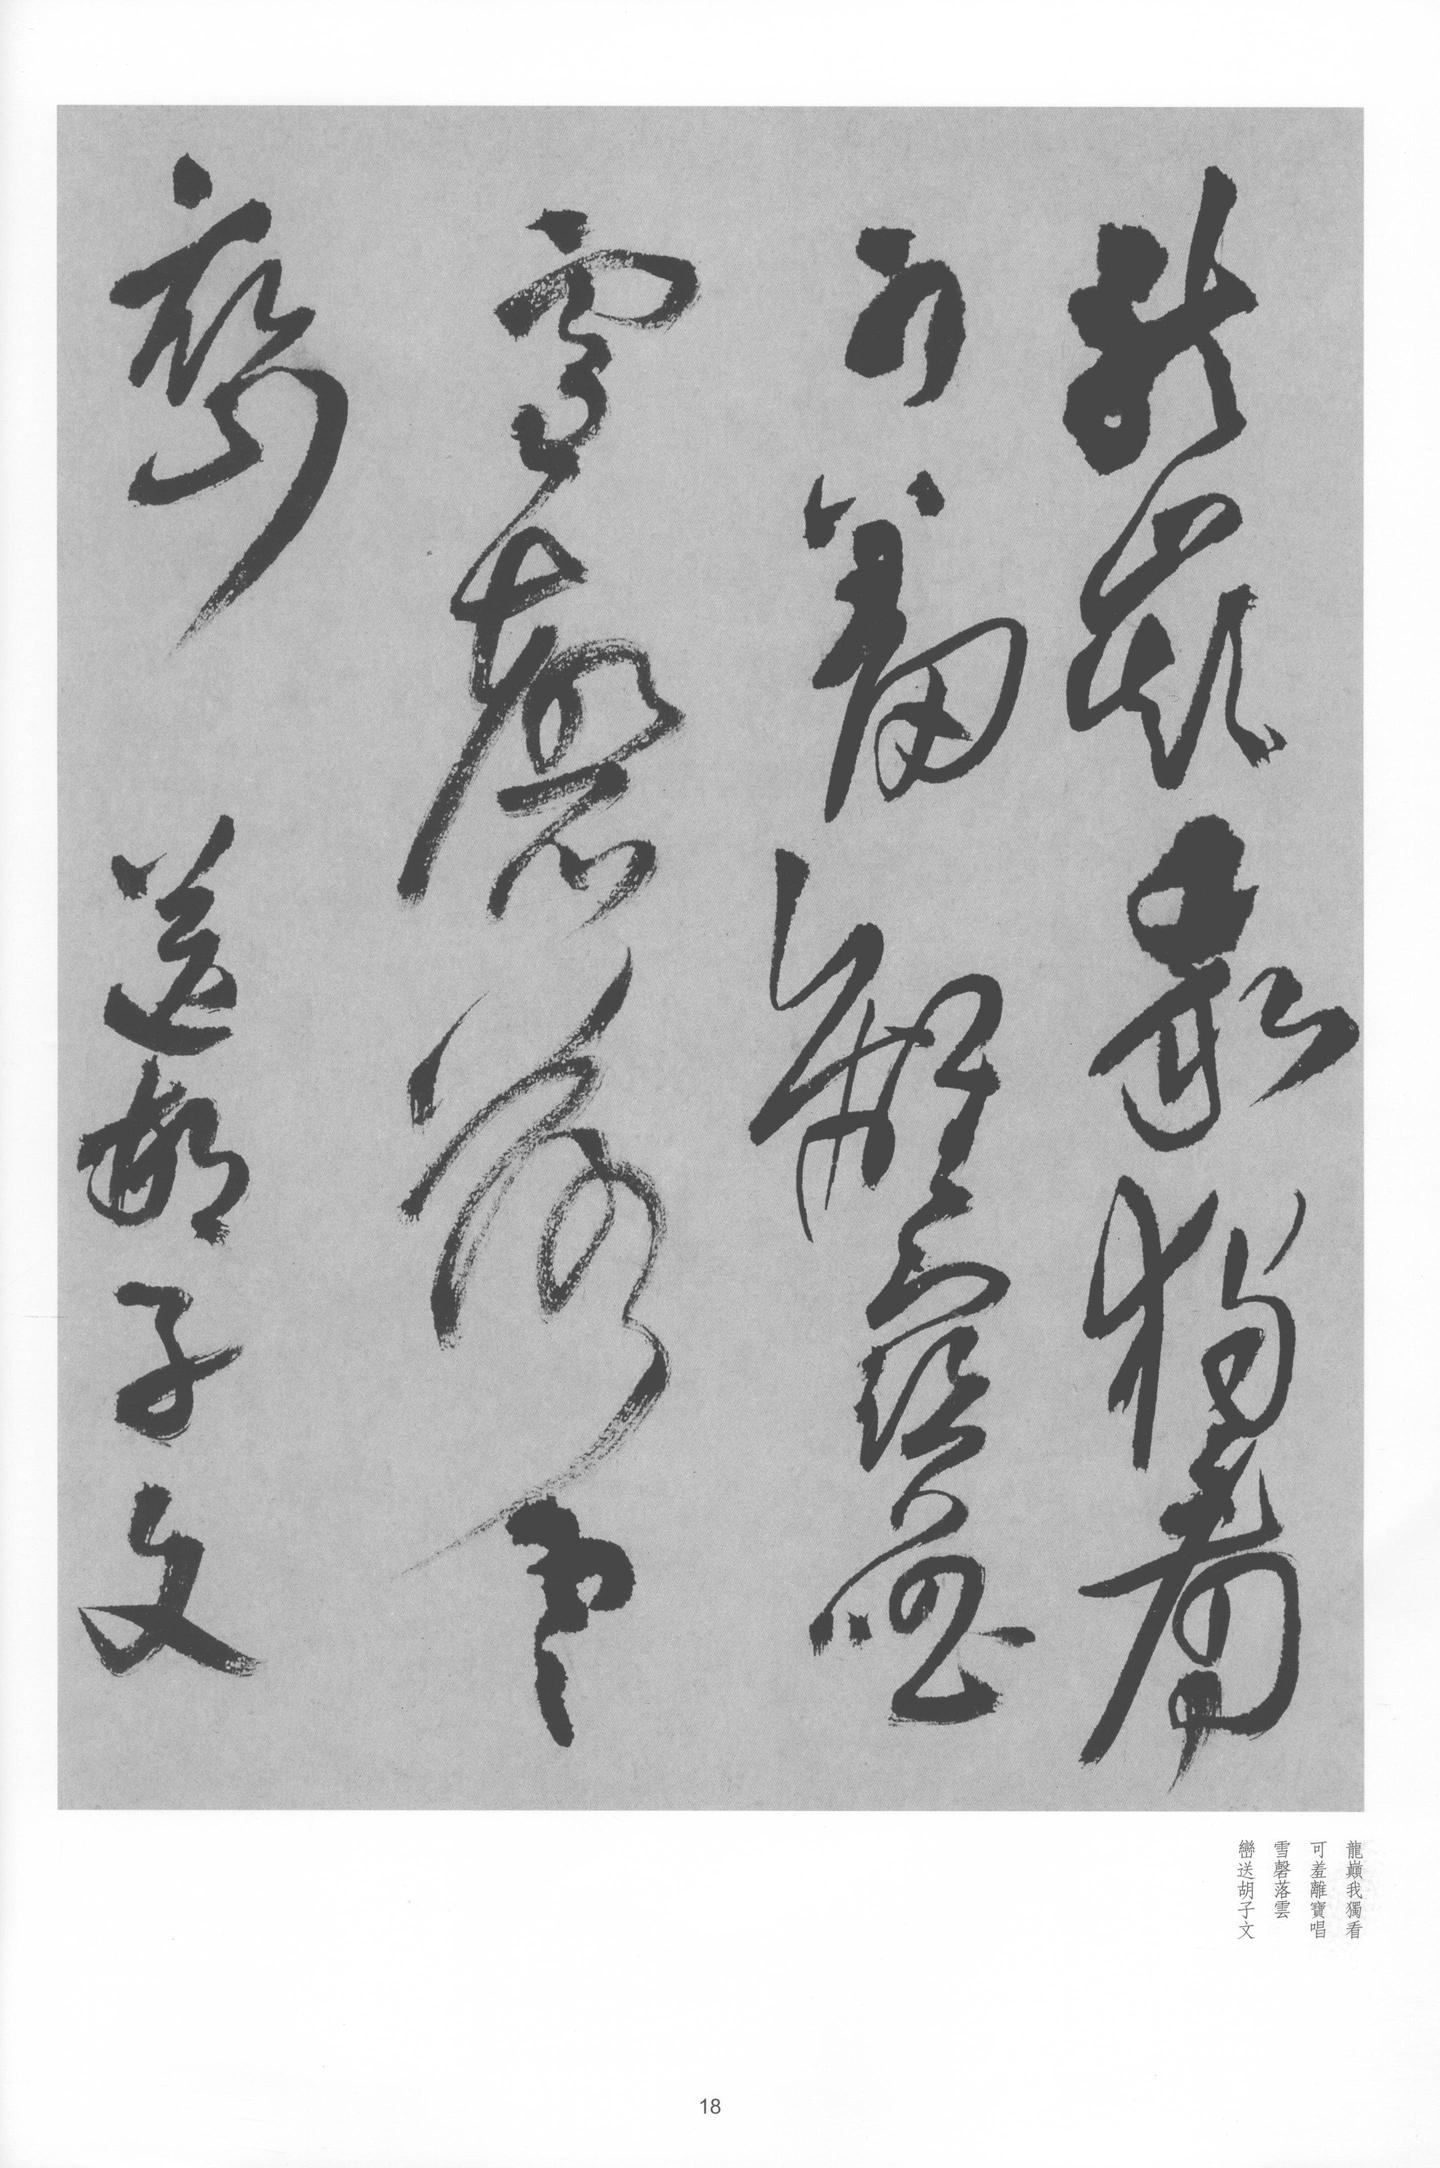 龍巔我獨看
可羞離寶唱
雪磬落雲
巒送胡子文
龍巔我獨看
可羞離寶唱
雪磬落雲
巒送胡子文
18